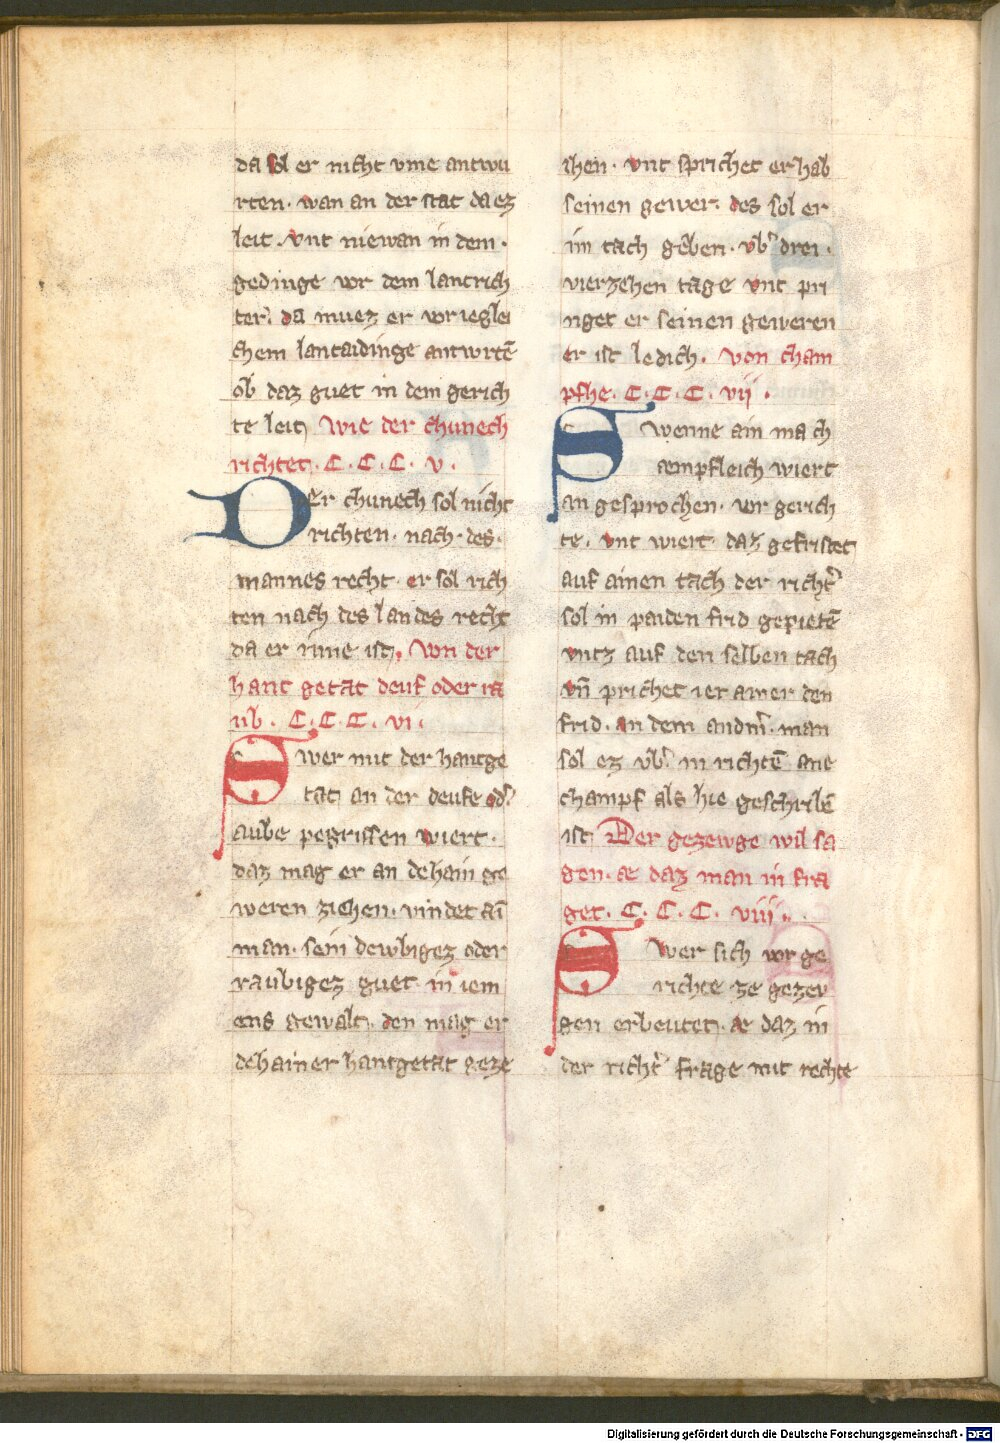 da sol er nicht vme antwu
rten · wan an der stat da ez
leit · vnt niewan in dem ·
gedinge vor dem lantrich
ter · da muez er vor ieglei
chem lantaidinge antwrtē
ob daz guet in dem gerich
te leit Wie der chunech
richtet · C · C · C · v ·
DEr chunech sol nicht
richten · nach · des ·
mannes recht · er sol rich
ten nach des landes recht
da er inne ist · Von der
hant getat deuf oder ra
ub · C · C · C · vi ·
Swer mit der hantge
tat an der deufe od'
aube pegriffen wiert ·
daz mag er an dehain ge
weren ziehen · vindet ai
man · sein dewbigez oder
raubigez guet · in iem
ens gewalt · den mag er
dehainer hantgetat geze
ihen · vnt sprichet er hab
seinen gewer · des sol er
im tach geben · vb' drei ·
vierzehen tage vnt pri
nget er seinen geweren
er ist ledich · von cham
pfhe · C · C · C · vij ·
Swenne ain ma ch
aempfleich wiert
an gesprochen · vor gerich
te · vnt wiert daz gefristet
auf ainen tach der richt'
sol in paiden frid gepietē
vntz auf den selben tach
vn̄ prichet ier ainer den
frid · an dem andm' · man
sol ez vb' in richtē ane
champf als hie geschribē
ist Der gezewge wil sa
gen · ae daz man in fra
get · C · C · C · viii ·
Swer sich vor ge
richte ze gezev
gen erbeutet · ae daz in
der richt' frage mit rechte
Digitalisierung gefördert durch die Deutsche Forschungsgemeinschaft - DFG